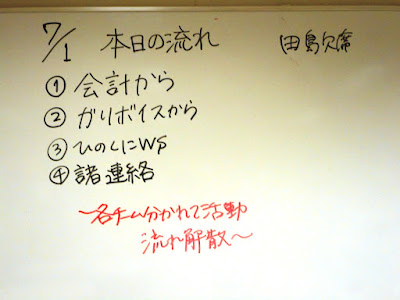 7/1 本日の流れ 田島欠席
① 会計から
② ガリボイスから
③ ひのくにWS
④ 諸連絡
〜各チーム分かれて活動
流れ解散〜